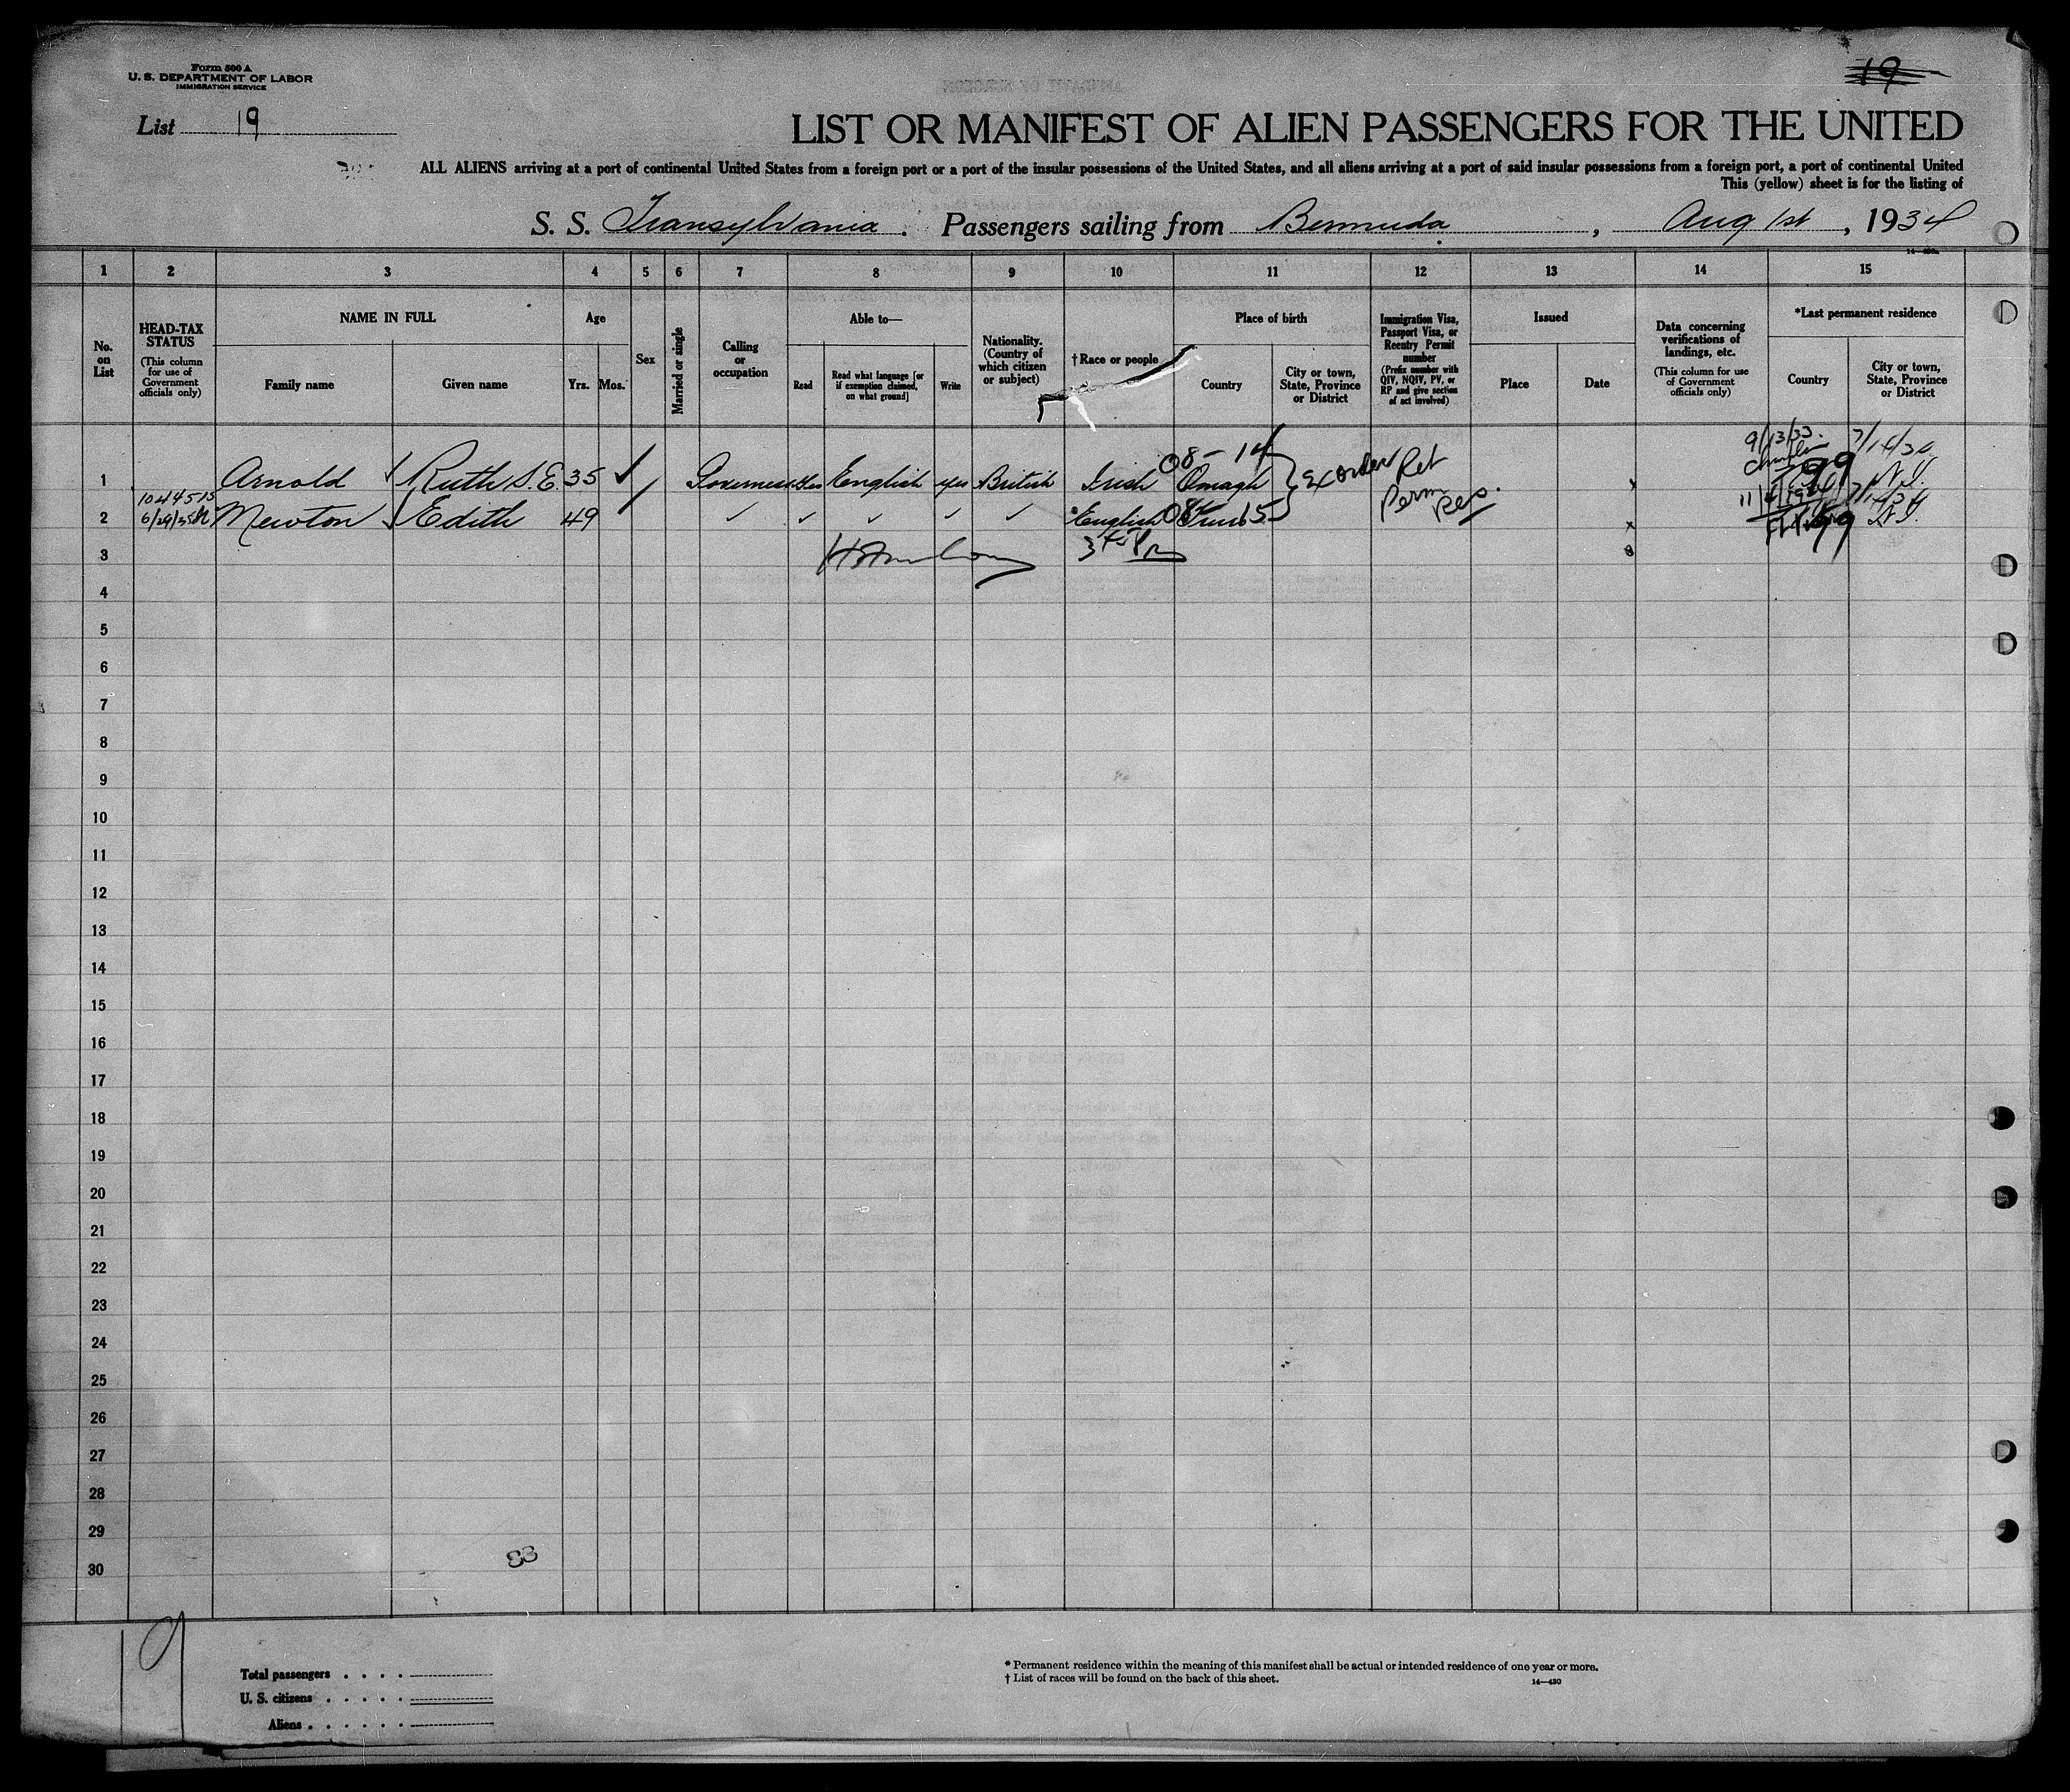 Form 500 A
U. S. DEPARTMENT OF LABOR
IMMIGRATION SERVICE
19
List 19
LIST OR MANIFEST OF ALIEN PASSENGERS FOR THE UNITED
ALL ALIENS arriving at a port of continental United States from a foreign port or a port of the insular possessions of the United States, and all aliens arriving at a port of said insular possessions from a foreign port, a port of continental United
This (yellow) sheet is for the listing of
S. S. Transylvania. Passengers sailing from Bermuda, Aug 1st, 1934
1 2 3 4 5 6 7 8 9 10 11 12 13 14 15
No. on List
HEAD-TAX STATUS
(This column for use of Government officials only)
NAME IN FULL
Family name
Given name
Age
Yrs.
Mos.
Sex
Married or single
Calling or occupation
Able to—
Read
Read what language [or if exemption claimed, on what ground]
Write
Nationality. (Country of which citizen or subject)
†Race or people
Place of birth
Country
City or town, State, Province or District
Immigration Visa, Passport Visa, or Reentry Permit number
(Prefix number with QIV, NQIV, PV, or RP and give section of act involved)
Issued
Place
Date
Data concerning verifications of landings, etc.
(This column for use of Government officials only)
*Last permanent residence
Country
City or town, State, Province or District
1 Arnold Ruth S. E. 35 Governess yes English yes British Irish Omagh 08-14 Ex order Ret Perm Res. 9/13/33. 99
2 Newton Edith 49 English 99
3
4
5
6
7
8
9
10
11
12
13
14
15
16
17
18
19
20
21
22
23
24
25
26
27
28
29
30
33
19
Total passengers
U. S. citizens
Aliens
* Permanent residence within the meaning of this manifest shall be actual or intended residence of one year or more.
† List of races will be found on the back of this sheet.
14—430